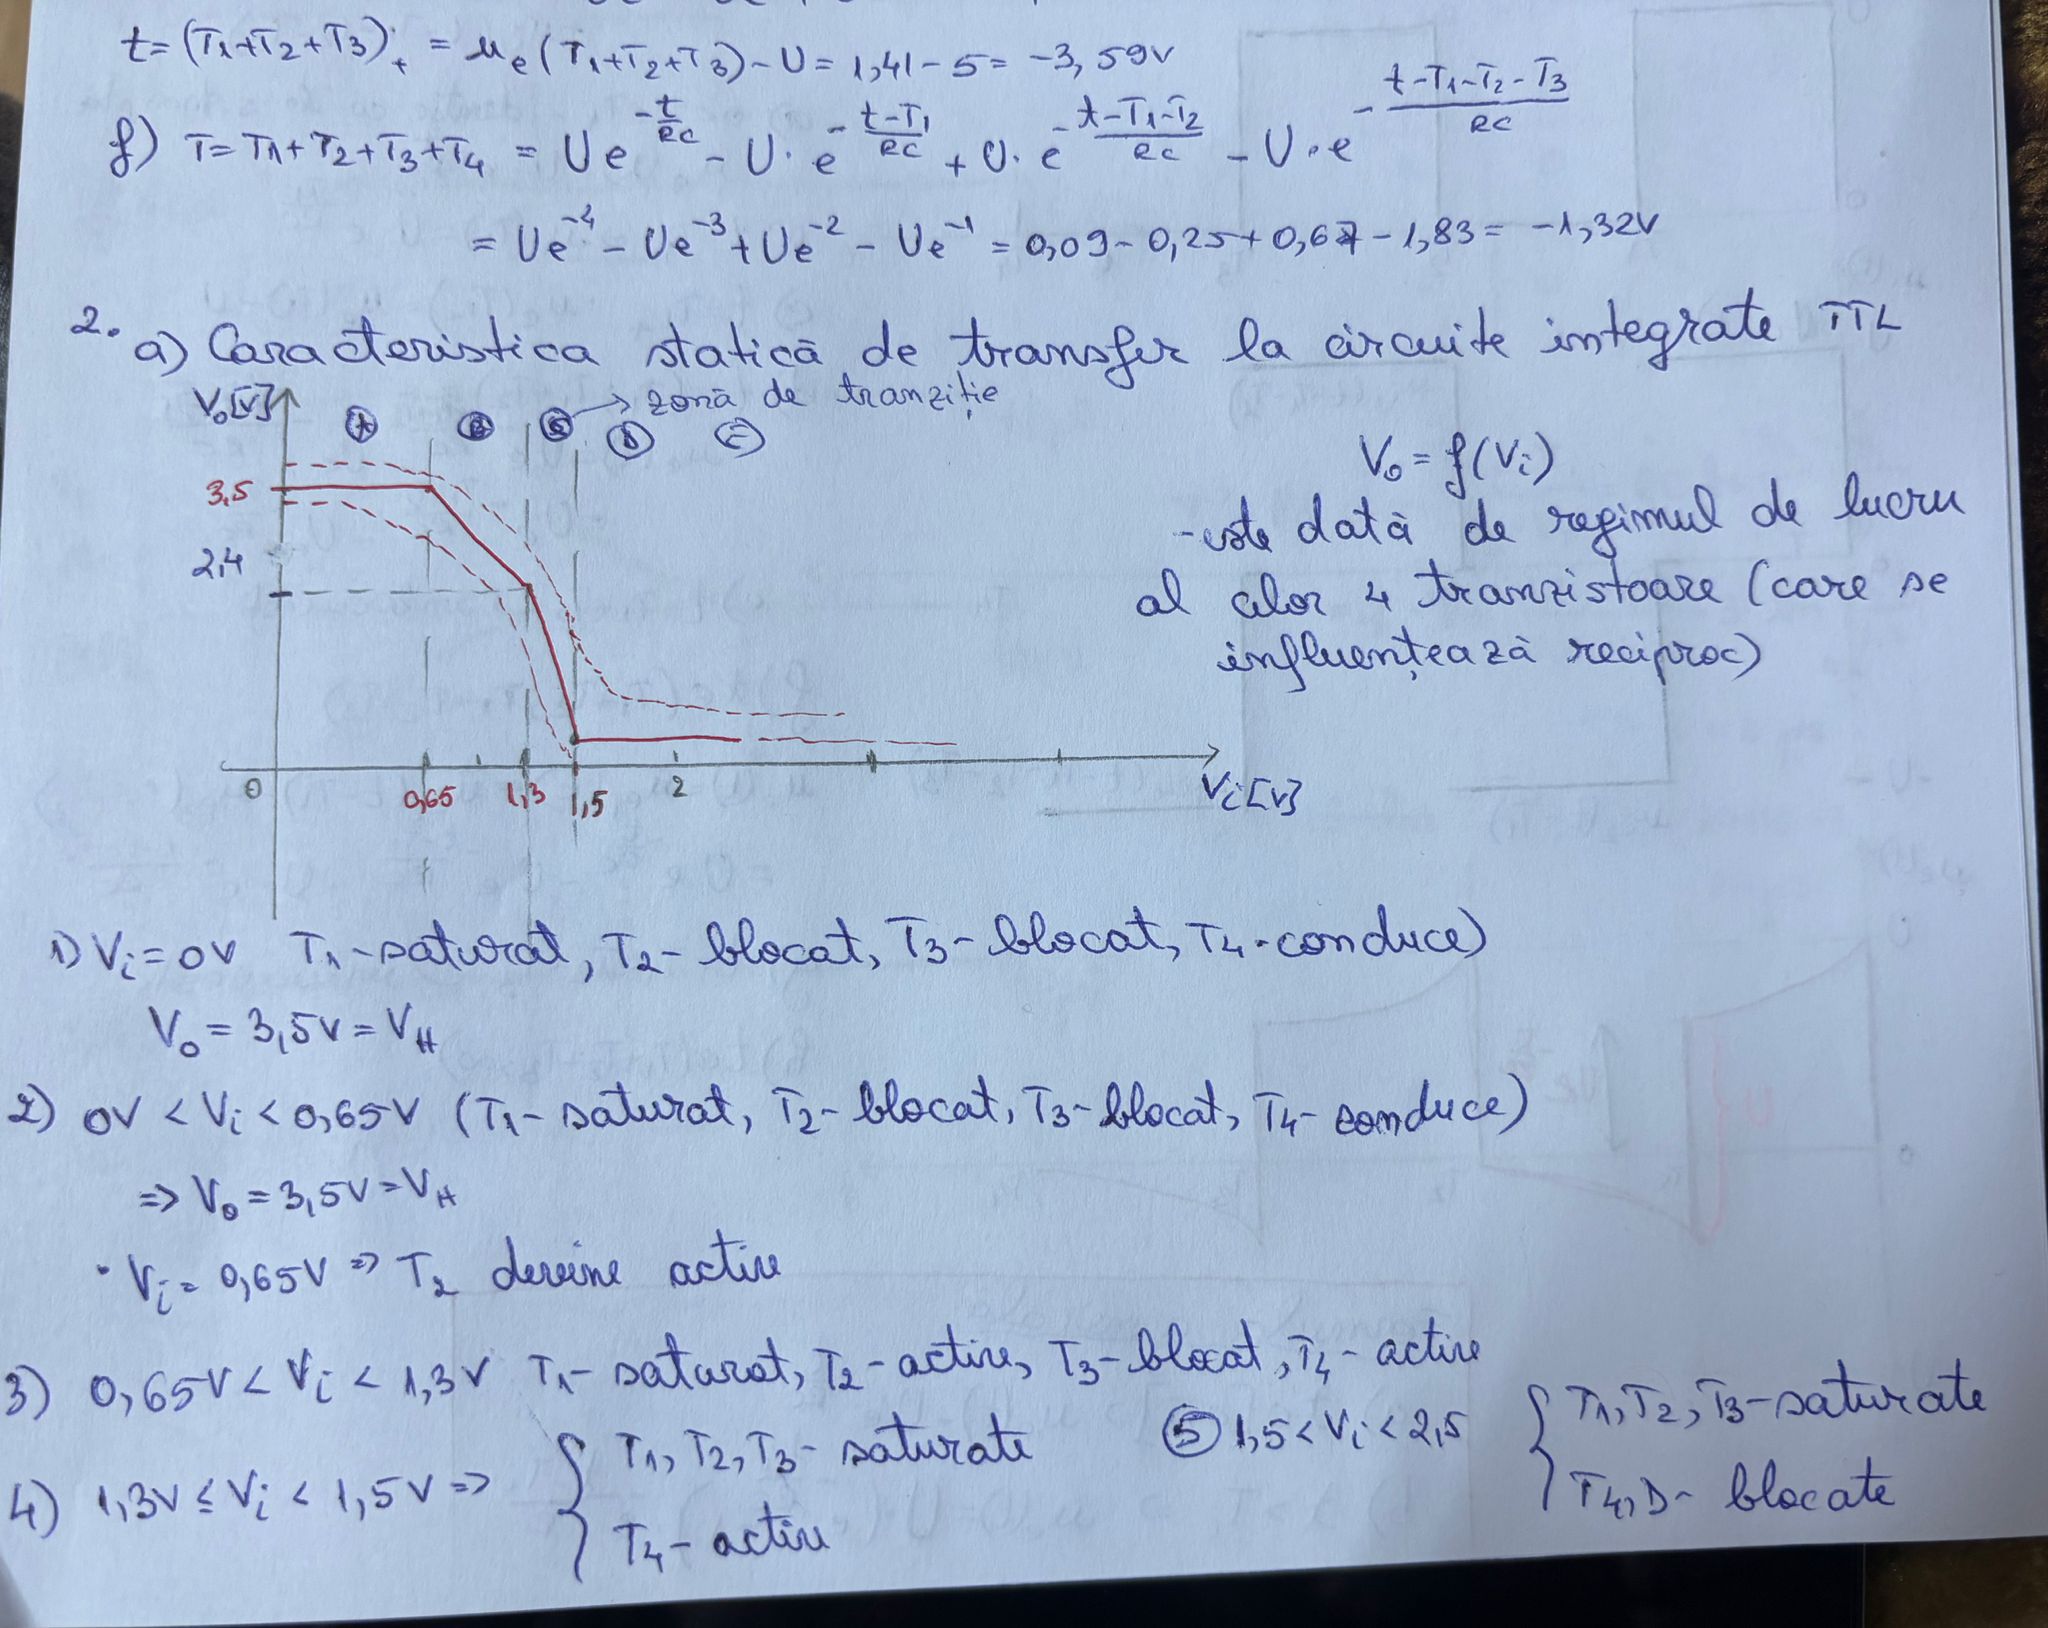 t=(T1+T2+T3)+ = ue(T1+T2+T3)-U = 1,41-5 = -3,59V
f) T=T1+T2+T3+T4 = Ue^(-t/RC) - U·e^(-(t-T1)/RC) + U·e^(-(t-T1-T2)/RC) - U·e^(-(t-T1-T2-T3)/RC)
= Ue^-4 - Ue^-3 + Ue^-2 - Ue^-1 = 0,09-0,25+0,67-1,83 = -1,32V
2. a) Caracteristica statică de transfer la circuite integrate TTL
V0[V]
A B C → zonă de tranziție
D E
3,5
2,4
0 0,65 1,3 1,5 2 Vi[V]
V0 = f(Vi)
-este dată de regimul de lucru
al celor 4 tranzistoare (care se
influențează reciproc)
1) Vi=0V T1-saturat, T2-blocat, T3-blocat, T4-conduce)
V0 = 3,5V = VH
2) 0V < Vi < 0,65V (T1-saturat, T2-blocat, T3-blocat, T4-conduce)
=> V0 = 3,5V = VH
· Vi = 0,65V => T2 devine activ
3) 0,65V < Vi < 1,3V T1-saturat, T2-activ, T3-blocat, T4-activ
4) 1,3V ≤ Vi < 1,5V => { T1, T2, T3-saturate
T4-activ
5 1,5 < Vi < 2,5 { T1, T2, T3-saturate
T4, D- blocate